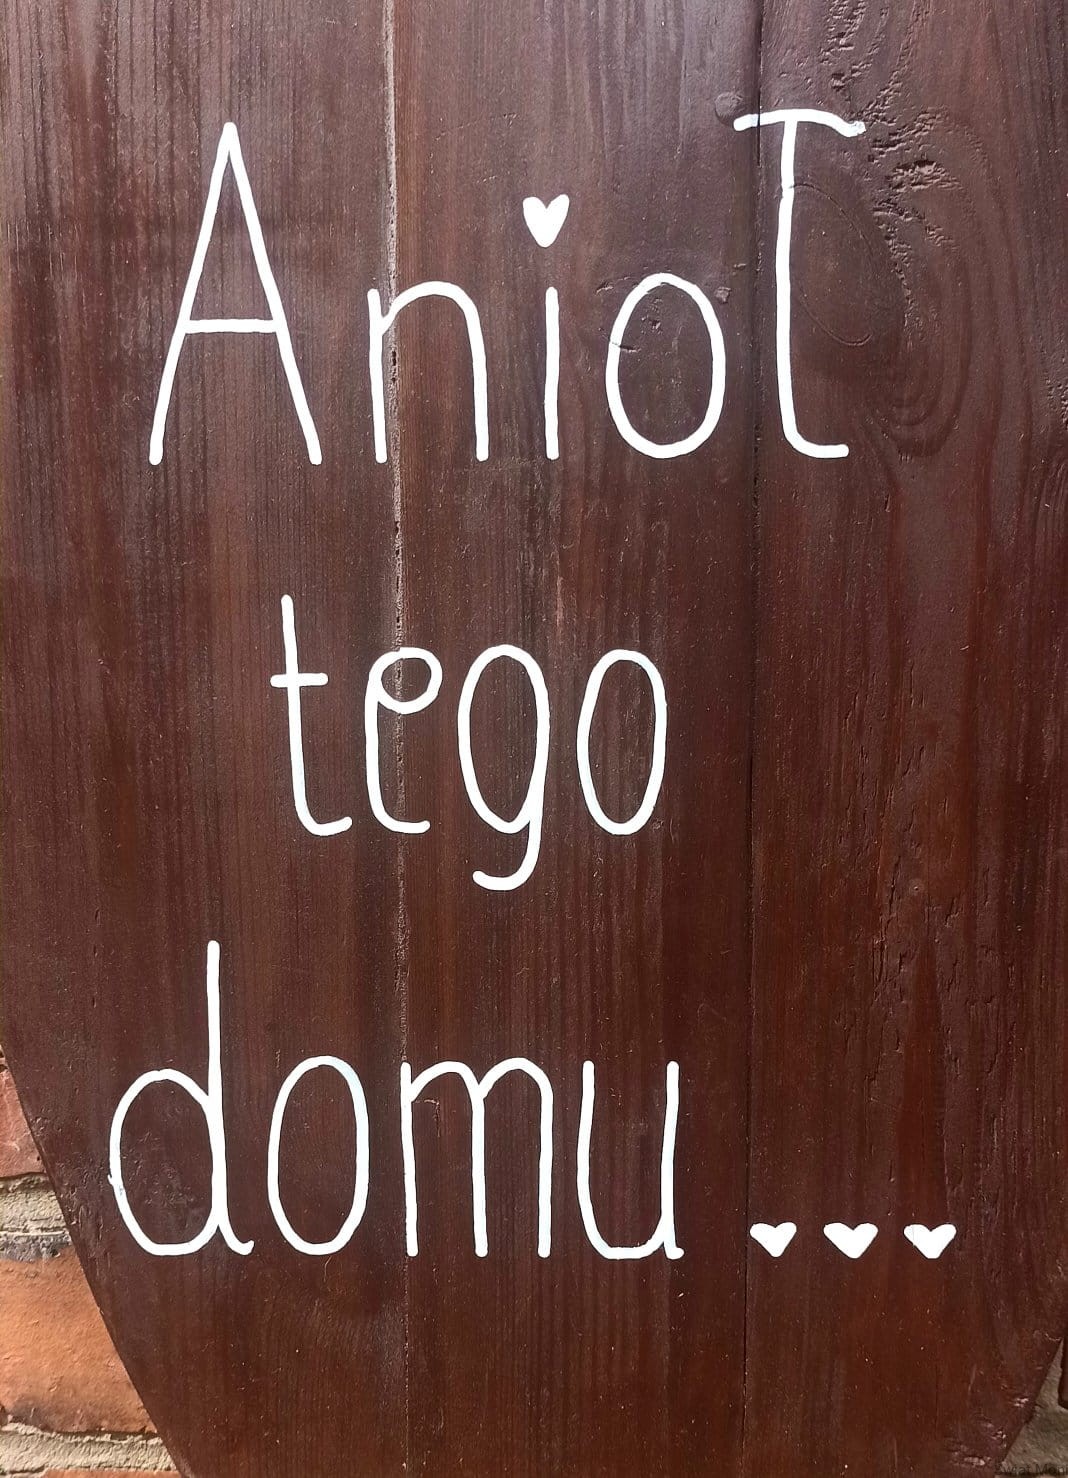 Anioł
tego
domu...